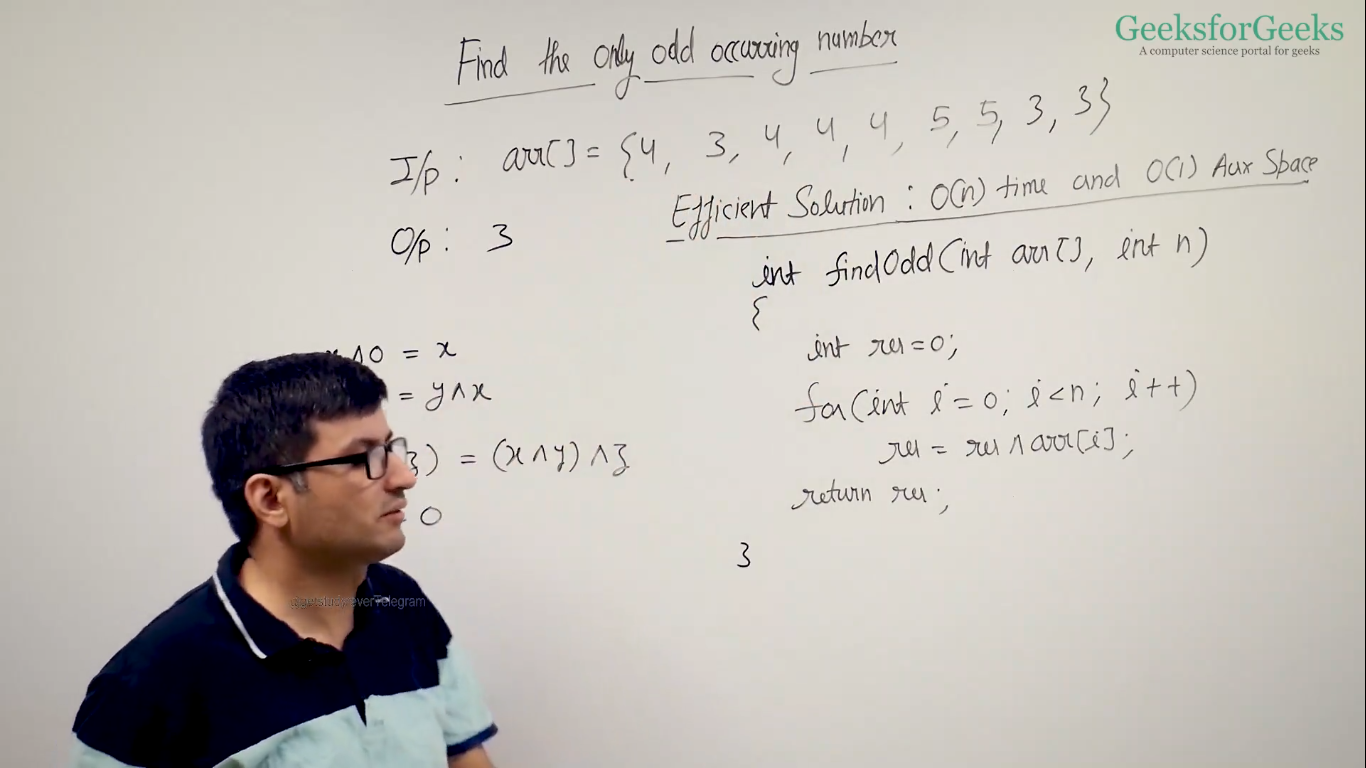 GeeksforGeeks
A computer science portal for geeks
Find the only odd occurring number
I/p : arr[] = {4, 3, 4, 4, 4, 5, 5, 3, 3}
O/p : 3
Efficient Solution : O(n) time and O(1) Aux Space
int findOdd(int arr[], int n)
{
int res=0;
for(int i=0; i<n; i++)
res = res ^ arr[i];
return res;
3
^0 = x
= y^x
) = (x^y)^z
0